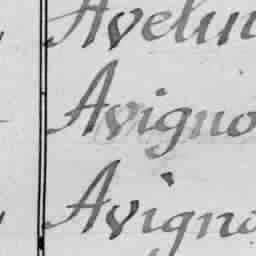 Avelui
Avigno
Avigno